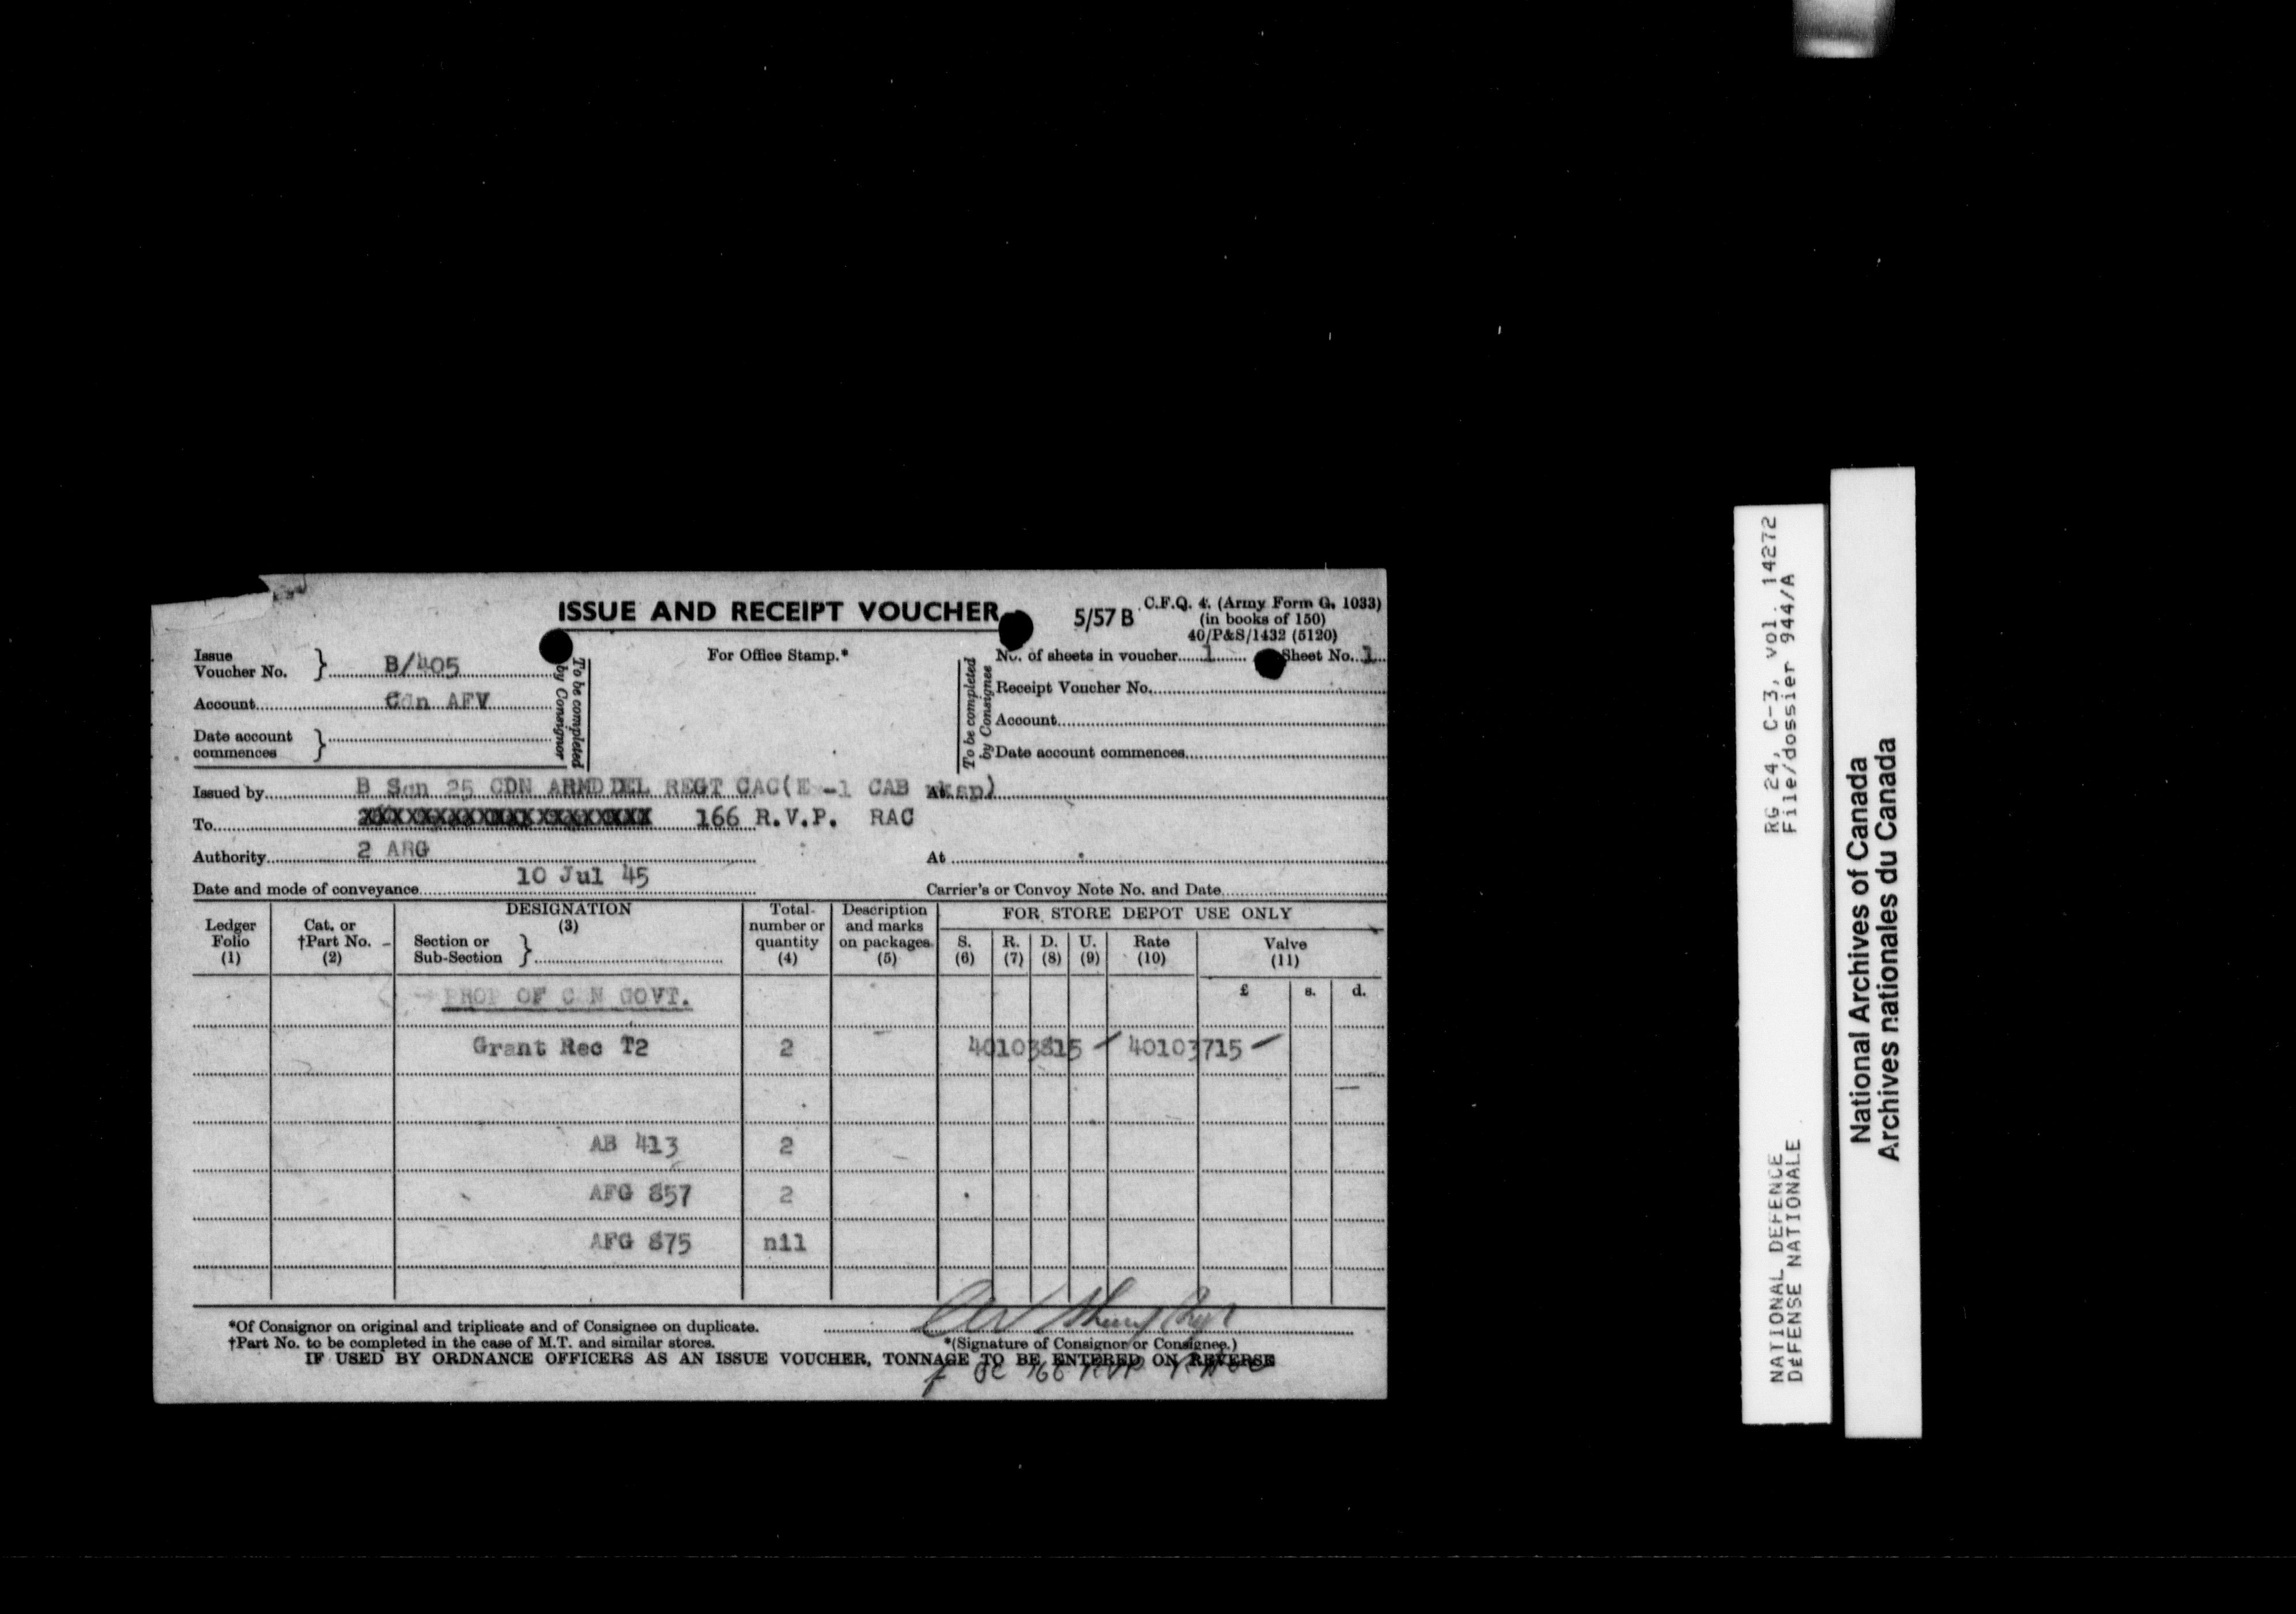 ISSUE AND RECEIPT VOUCHER
5/57 B
C.F.Q. 4. (Army Form G. 1033)
(in books of 150)
40/P&S/1432 (5120)
Issue Voucher No. B/405
Account Cdn AFV
Date account commences
To be completed by Consignor
For Office Stamp.*
To be completed by Consignee
No. of sheets in voucher 1 Sheet No. 1
Receipt Voucher No.
Account
Date account commences
Issued by B Sqn 25 CDN ARMD DEL REGT CAC(E -1 CAB wksp) At
To 166 R.V.P. RAC
Authority 2 ARG At
Date and mode of conveyance 10 Jul 45 Carrier's or Convoy Note No. and Date
Ledger Folio (1)
Cat. or †Part No. (2)
DESIGNATION (3)
Section or Sub-Section
Total number or quantity (4)
Description and marks on packages (5)
FOR STORE DEPOT USE ONLY
S. (6) R. (7) D. (8) U. (9) Rate (10) Valve (11)
£ s. d.
PROP OF C N GOVT.
Grant Rec T2 2 40103815 40103715
AB 413 2
AFG 857 2
AFG 875 nil
*Of Consignor on original and triplicate and of Consignee on duplicate.
†Part No. to be completed in the case of M.T. and similar stores.
*(Signature of Consignor or Consignee.)
IF USED BY ORDNANCE OFFICERS AS AN ISSUE VOUCHER, TONNAGE TO BE ENTERED ON REVERSE
166 RVP
RG 24, C-3, vol. 14272
File/dossier 944/A
NATIONAL DEFENCE
DÉFENSE NATIONALE
National Archives of Canada
Archives nationales du Canada